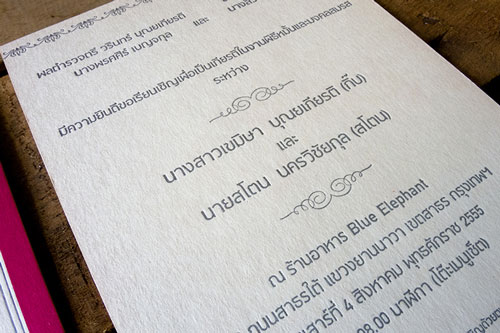 พลตำรวจตรี วรินทร์ บุณยเกียรติ และ
นางพรศิริ เบญจกุล
มีความยินดีขอเรียนเชิญเพื่อเป็นเกียรติในงานพิธีหมั้นและมงคลสมรส
ระหว่าง
นางสาวเขมิษา บุณยเกียรติ (กิ๊บ)
และ
นายสโตน นครวิชัยกุล (สโตน)
ณ ร้านอาหาร Blue Elephant
ถนนสาธรใต้ แขวงยานนาวา เขตสาธร กรุงเทพฯ
4 สิงหาคม พุทธศักราช 2555
นาฬิกา (โต๊ะเมนูเซ็ต)